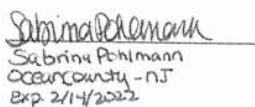 Sabrina Pohlmann
Sabrina Pohlmann
Oceancounty - NJ
Exp. 2/14/2022